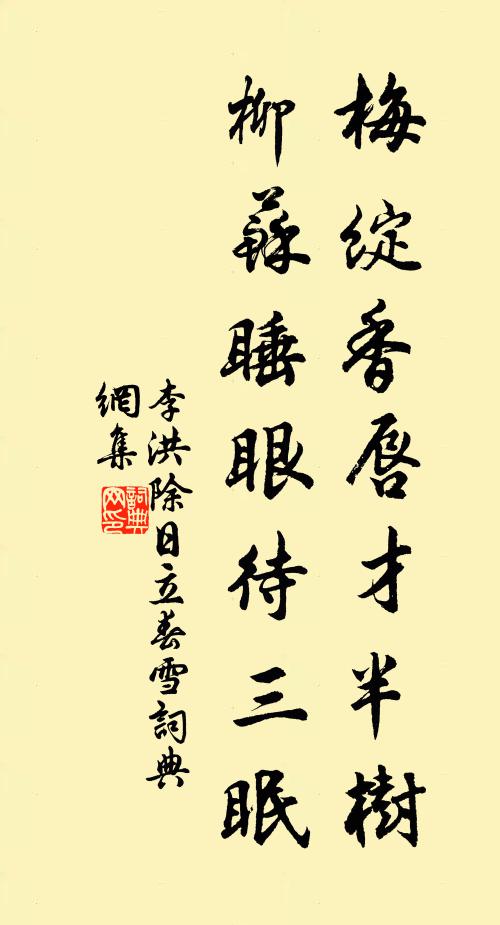 梅綻香唇才半樹
柳蘇睡眼待三眠
李洪除日立春雪詞典
網集
詞典
网印